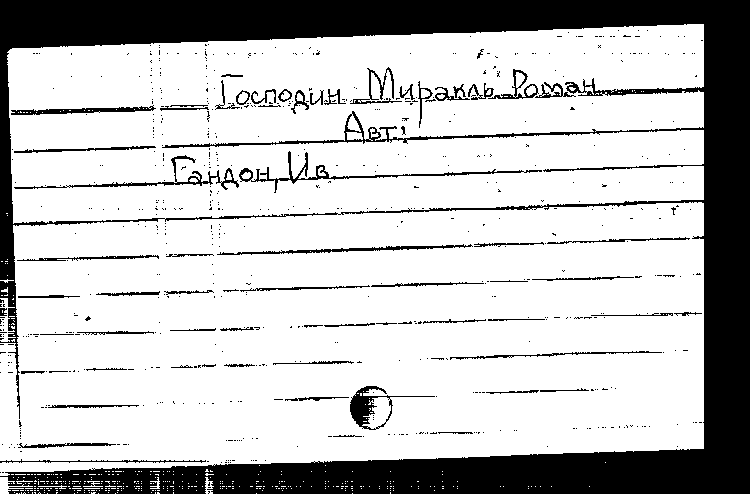 Господин Миракль Роман
Авт:
Гандон, Ив